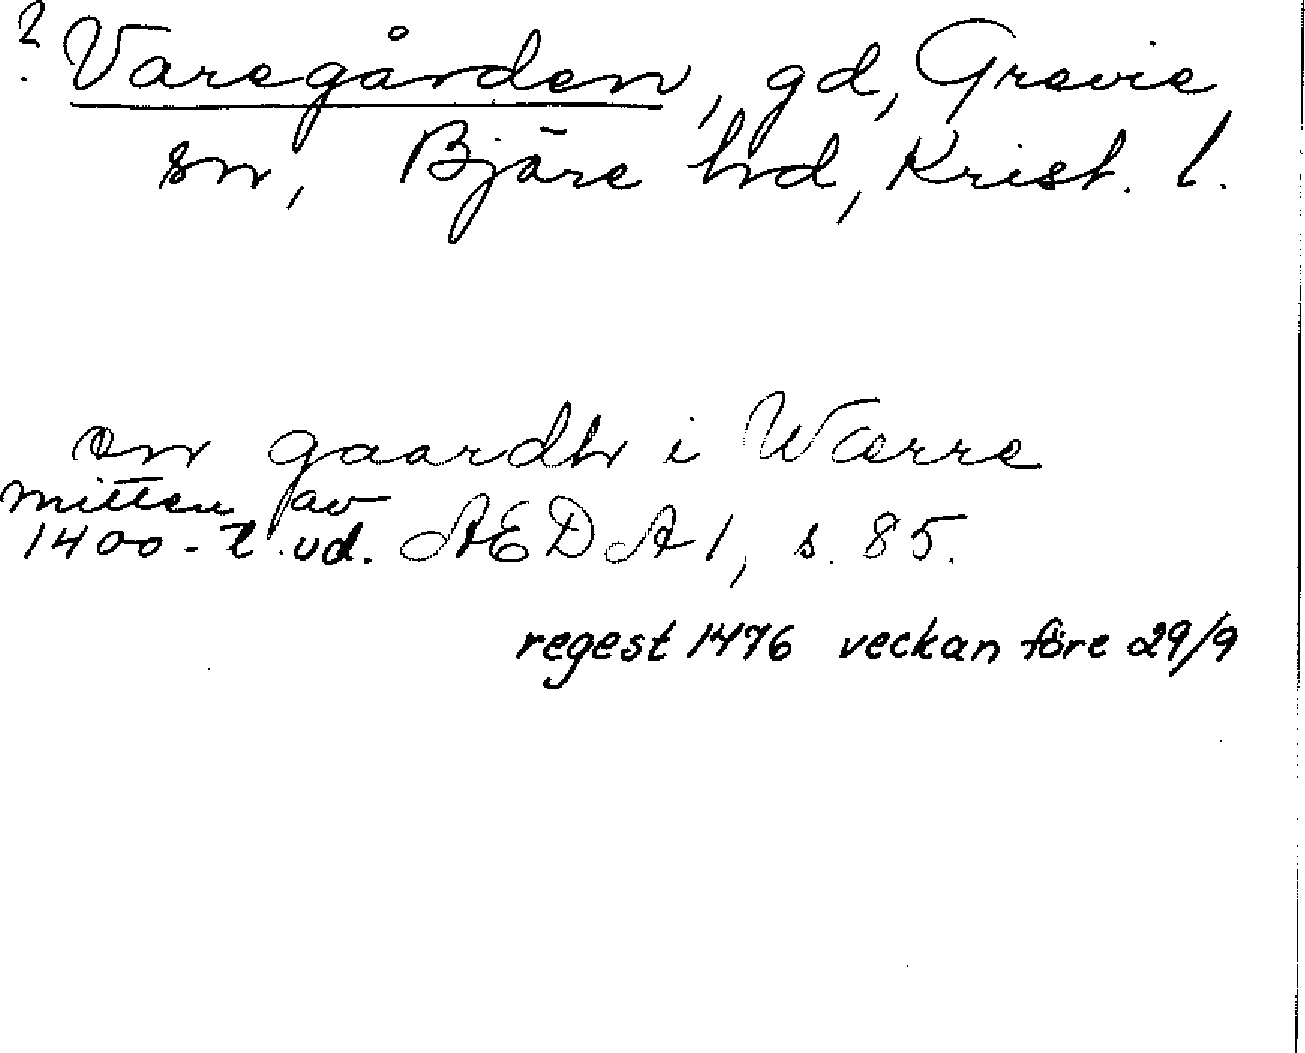 ? Varegården, gd, Grevie
sn, Bjäre hd, Krist. l.
en gaardh i Wærre
mitten av
1400-t ud. ÆDA 1, s. 85.
regest 1476 veckan före 29/9